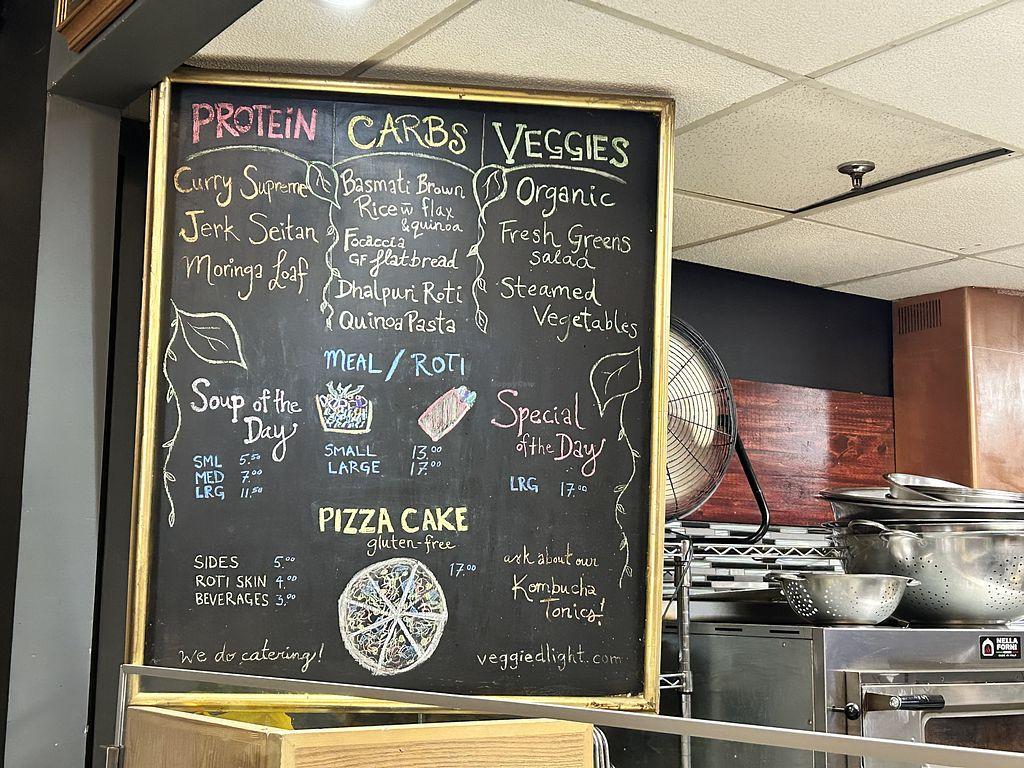 PROTEIN
Curry Supreme
Jerk Seitan
Moringa Loaf
CARBS
Basmati Brown
Rice w̄ flax
& quinoa
Focaccia
GF flatbread
Dhalpuri Roti
Quinoa Pasta
VEGGIES
Organic
Fresh Greens
salad
Steamed
Vegetables
MEAL / ROTI
SMALL 13.00
LARGE 17.00
Soup of the
Day
SML 5.50
MED 7.00
LRG 11.50
Special
of the Day
LRG 17.00
PIZZA CAKE
gluten-free
17.00
SIDES 5.00
ROTI SKIN 4.00
BEVERAGES 3.00
ask about our
Kombucha
Tonics!
we do catering!
veggiedlight.com
NELLA
FORNI